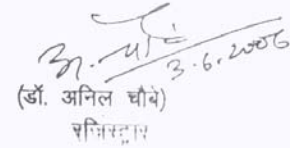 3.6.2006
(डॉ. अनिल चौबे)
रजिस्ट्रार